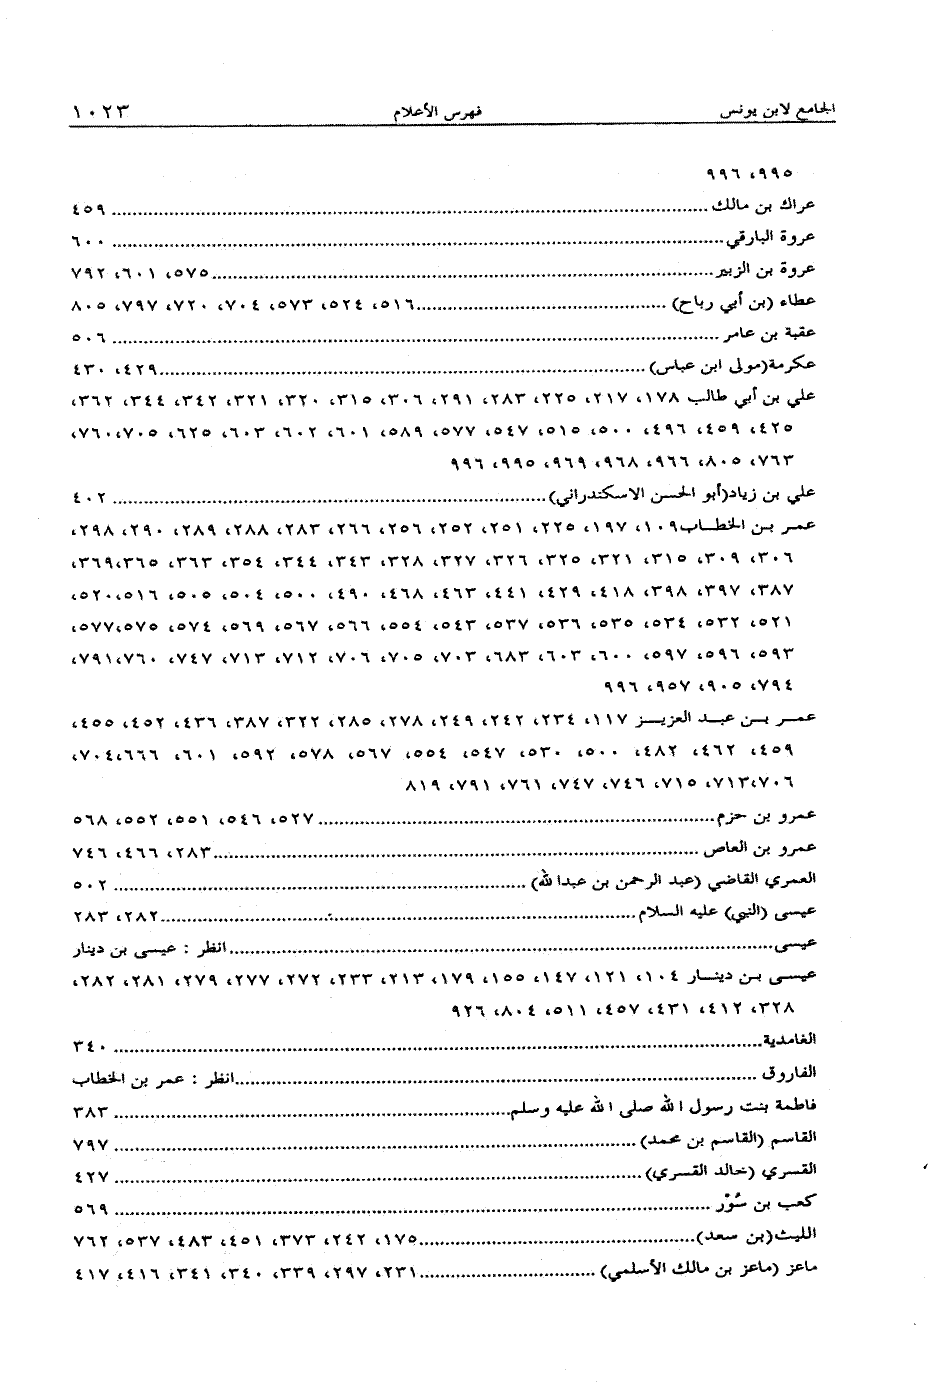 الجامع لابن يونس فهرس الأعلام ١٠٢٣
٩٩٥، ٩٩٦
عراك بن مالك ........ ٤٥٩
عروة البارقي ........ ٦٠٠
عروة بن الزبير ........ ٥٧٥، ٦٠١، ٧٩٢
عطاء (بن أبي رباح) ........ ٥١٦، ٥٢٤، ٥٧٣، ٧٠٤، ٧٢٠، ٧٩٧، ٨٠٥
عقبة بن عامر ........ ٥٠٦
عكرمة(مولى ابن عباس) ........ ٤٢٩، ٤٣٠
علي بن أبي طالب ١٧٨، ٢١٧، ٢٢٥، ٢٨٣، ٢٩١، ٣٠٦، ٣١٥، ٣٢٠، ٣٢١، ٣٤٢، ٣٤٤، ٣٦٢،
٤٢٥، ٤٥٩، ٤٩٦، ٥٠٠، ٥١٥، ٥٤٧، ٥٧٧، ٥٨٩، ٦٠١، ٦٠٢، ٦٠٣، ٦٢٥، ٧٠٥،٧٦٠،
٧٦٣، ٨٠٥، ٩٦٦، ٩٦٨، ٩٦٩، ٩٩٥، ٩٩٦
علي بن زياد(أبو الحسن الاسكندراني) ........ ٤٠٢
عمر بن الخطاب١٠٩، ١٩٧، ٢٢٥، ٢٥١، ٢٥٢، ٢٥٦، ٢٦٦، ٢٨٣، ٢٨٨، ٢٨٩، ٢٩٠، ٢٩٨،
٣٠٦، ٣٠٩، ٣١٥، ٣٢١، ٣٢٥، ٣٢٦، ٣٢٧، ٣٢٨، ٣٤٣، ٣٤٤، ٣٥٤، ٣٦٣، ٣٦٥،٣٦٩،
٣٨٧، ٣٩٧، ٣٩٨، ٤١٨، ٤٢٩، ٤٤١، ٤٦٣، ٤٦٨، ٤٩٠، ٥٠٠، ٥٠٤، ٥٠٥، ٥١٦،٥٢٠،
٥٢١، ٥٣٢، ٥٣٤، ٥٣٥، ٥٣٦، ٥٣٧، ٥٤٣، ٥٥٤، ٥٦٦، ٥٦٧، ٥٦٩، ٥٧٤، ٥٧٥،٥٧٧،
٥٩٣، ٥٩٦، ٥٩٧، ٦٠٠، ٦٠٣، ٦٨٣، ٧٠٣، ٧٠٥، ٧٠٦، ٧١٢، ٧١٣، ٧٤٧، ٧٦٠،٧٩١،
٧٩٤، ٩٠٥، ٩٥٧، ٩٩٦
عمر بن عبد العزيز ١١٧، ٢٣٤، ٢٤٢، ٢٤٩، ٢٧٨، ٢٨٥، ٣٢٢، ٣٨٧، ٤٣٦، ٤٥٢، ٤٥٥،
٤٥٩، ٤٦٢، ٤٨٢، ٥٠٠، ٥٣٠، ٥٤٧، ٥٥٤، ٥٦٧، ٥٧٨، ٥٩٢، ٦٠١، ٦٦٦،٧٠٤،
٧٠٦،٧١٣، ٧١٥، ٧٤٦، ٧٤٧، ٧٦١، ٧٩١، ٨١٩
عمرو بن حزم ........ ٥٢٧، ٥٤٦، ٥٥١، ٥٥٢، ٥٦٨
عمرو بن العاص ........ ٢٨٣، ٤٦٦، ٧٤٦
العمري القاضي (عبد الرحمن بن عبدالله) ........ ٥٠٢
عيسى (النبي) عليه السلام ........ ٢٨٢، ٢٨٣
عيسى ........ انظر : عيسى بن دينار
عيسى بن دينار ١٠٤، ١٢١، ١٤٧، ١٥٥، ١٧٩، ٢١٣، ٢٣٣، ٢٧٢، ٢٧٧، ٢٧٩، ٢٨١، ٢٨٢،
٣٢٨، ٤١٢، ٤٣١، ٤٥٧، ٥١١، ٨٠٤، ٩٢٦
الغامدية ........ ٣٤٠
الفاروق ........ انظر : عمر بن الخطاب
فاطمة بنت رسول الله صلى الله عليه وسلم ........ ٣٨٣
القاسم (القاسم بن محمد) ........ ٧٩٧
القسري (خالد القسري) ........ ٤٢٧
كعب بن سُوْر ........ ٥٦٩
الليث(بن سعد) ........ ١٧٥، ٢٤٢، ٣٧٣، ٤٥١، ٤٨٣، ٥٣٧، ٧٦٢
ماعز (ماعز بن مالك الأسلمي) ........ ٢٣١، ٢٩٧، ٣٣٩، ٣٤٠، ٣٤١، ٤١٦، ٤١٧